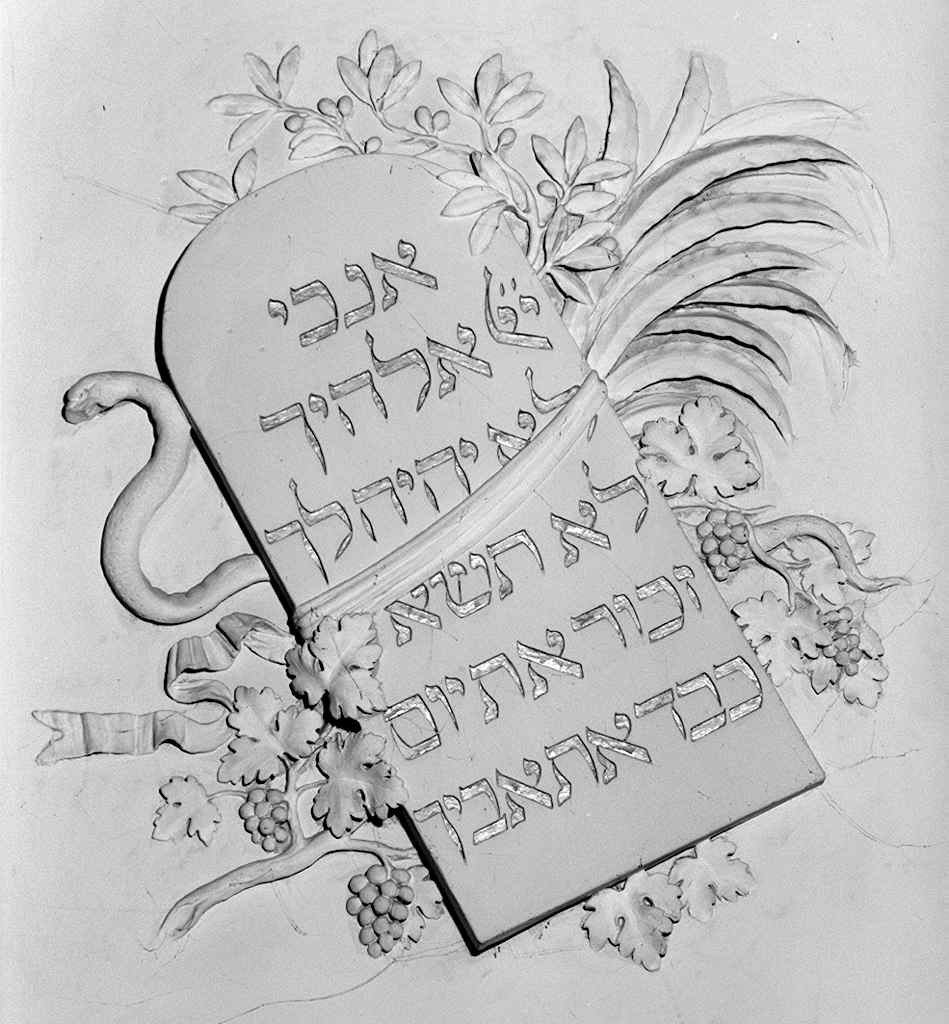 אנכי
יי אלהיך
לא יהיה לך
לא תשא
זכור את יום
כבד את אביך